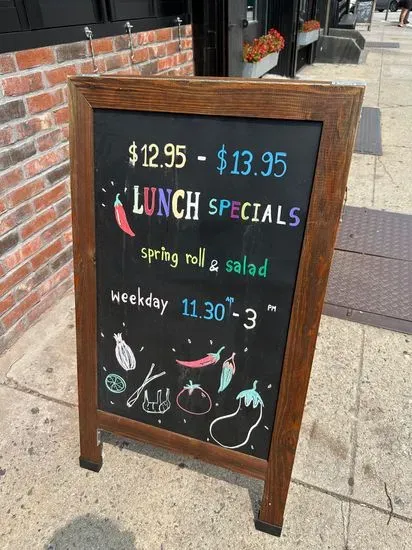 $12.95 - $13.95
LUNCH SPECIALS
spring roll & salad
weekday 11.30 AM - 3 PM